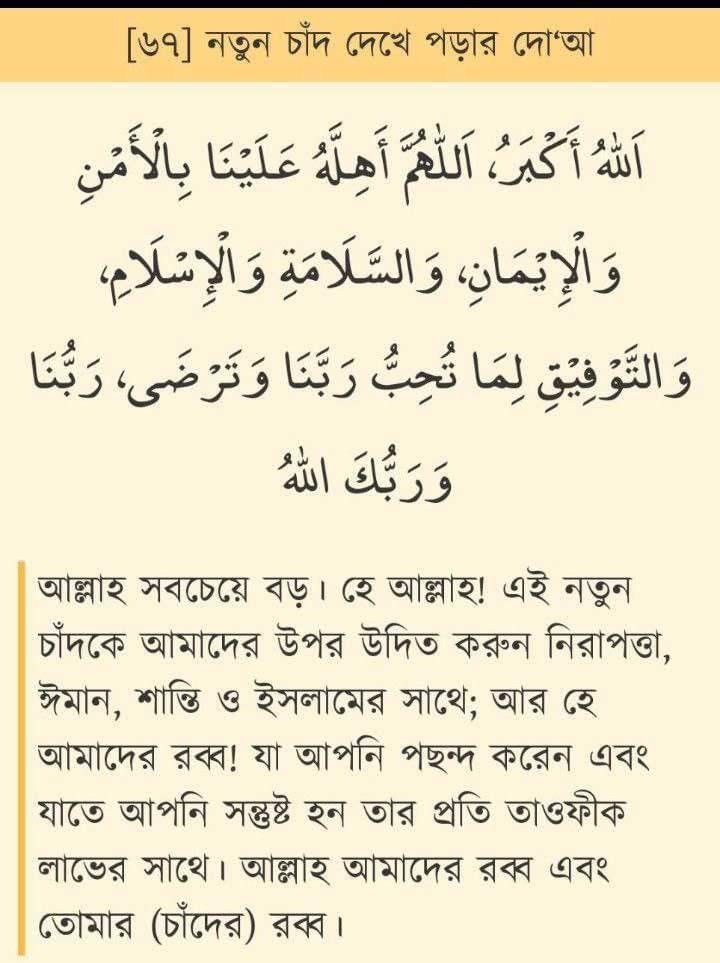 [৬৭] নতুন চাঁদ দেখে পড়ার দো‘আ
اَللهُ أَكْبَرُ، اَللّٰهُمَّ أَهِلَّهُ عَلَيْنَا بِالْأَمْنِ
وَالْإِيْمَانِ، وَالسَّلَامَةِ وَالْإِسْلَامِ،
وَالتَّوْفِيْقِ لِمَا تُحِبُّ رَبَّنَا وَتَرْضَى، رَبُّنَا
وَرَبُّكَ اللهُ
আল্লাহ সবচেয়ে বড়। হে আল্লাহ! এই নতুন
চাঁদকে আমাদের উপর উদিত করুন নিরাপত্তা,
ঈমান, শান্তি ও ইসলামের সাথে; আর হে
আমাদের রব্ব! যা আপনি পছন্দ করেন এবং
যাতে আপনি সন্তুষ্ট হন তার প্রতি তাওফীক
লাভের সাথে। আল্লাহ আমাদের রব্ব এবং
তোমার (চাঁদের) রব্ব।